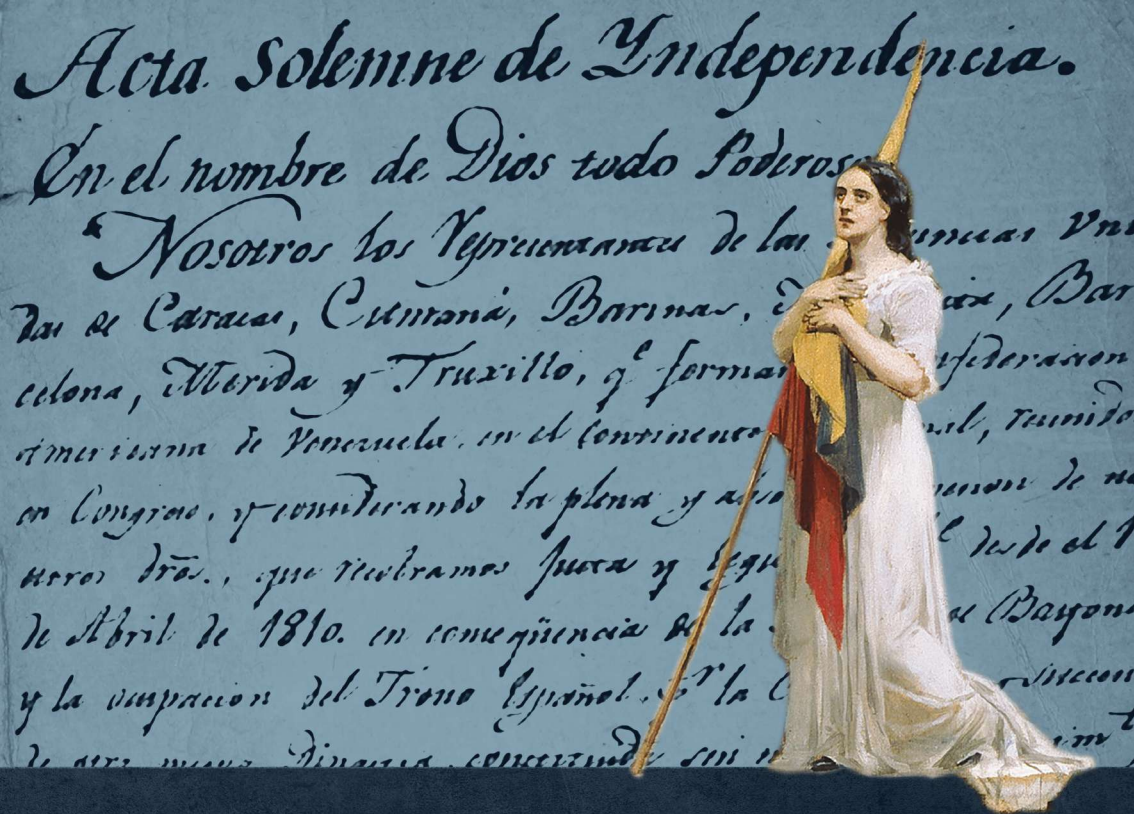 Acta Solemne de Yndependencia.
En el nombre de Dios todo Poderoso
Nosotros los Representantes de las Uni
das de Caracas, Cumaná, Barinas, Bar
celona, Merida y Truxillo, qe forman
americana de Venezuela en el Continente reunido
en Congreso, y considerando la plena y de
drõs., que recobramos justa y desde el
de Abril de 1810. en conseqüencia de la Bayon
y la ocupacion del Trono Español pr la
de otra nueva Dinastia constituida sin